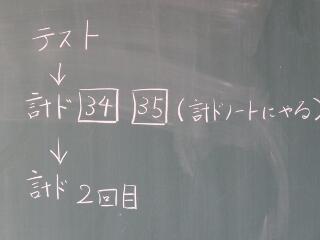 テスト
↓
計ド 34 35 (計ドノートにやる)
↓
計ド 2回目